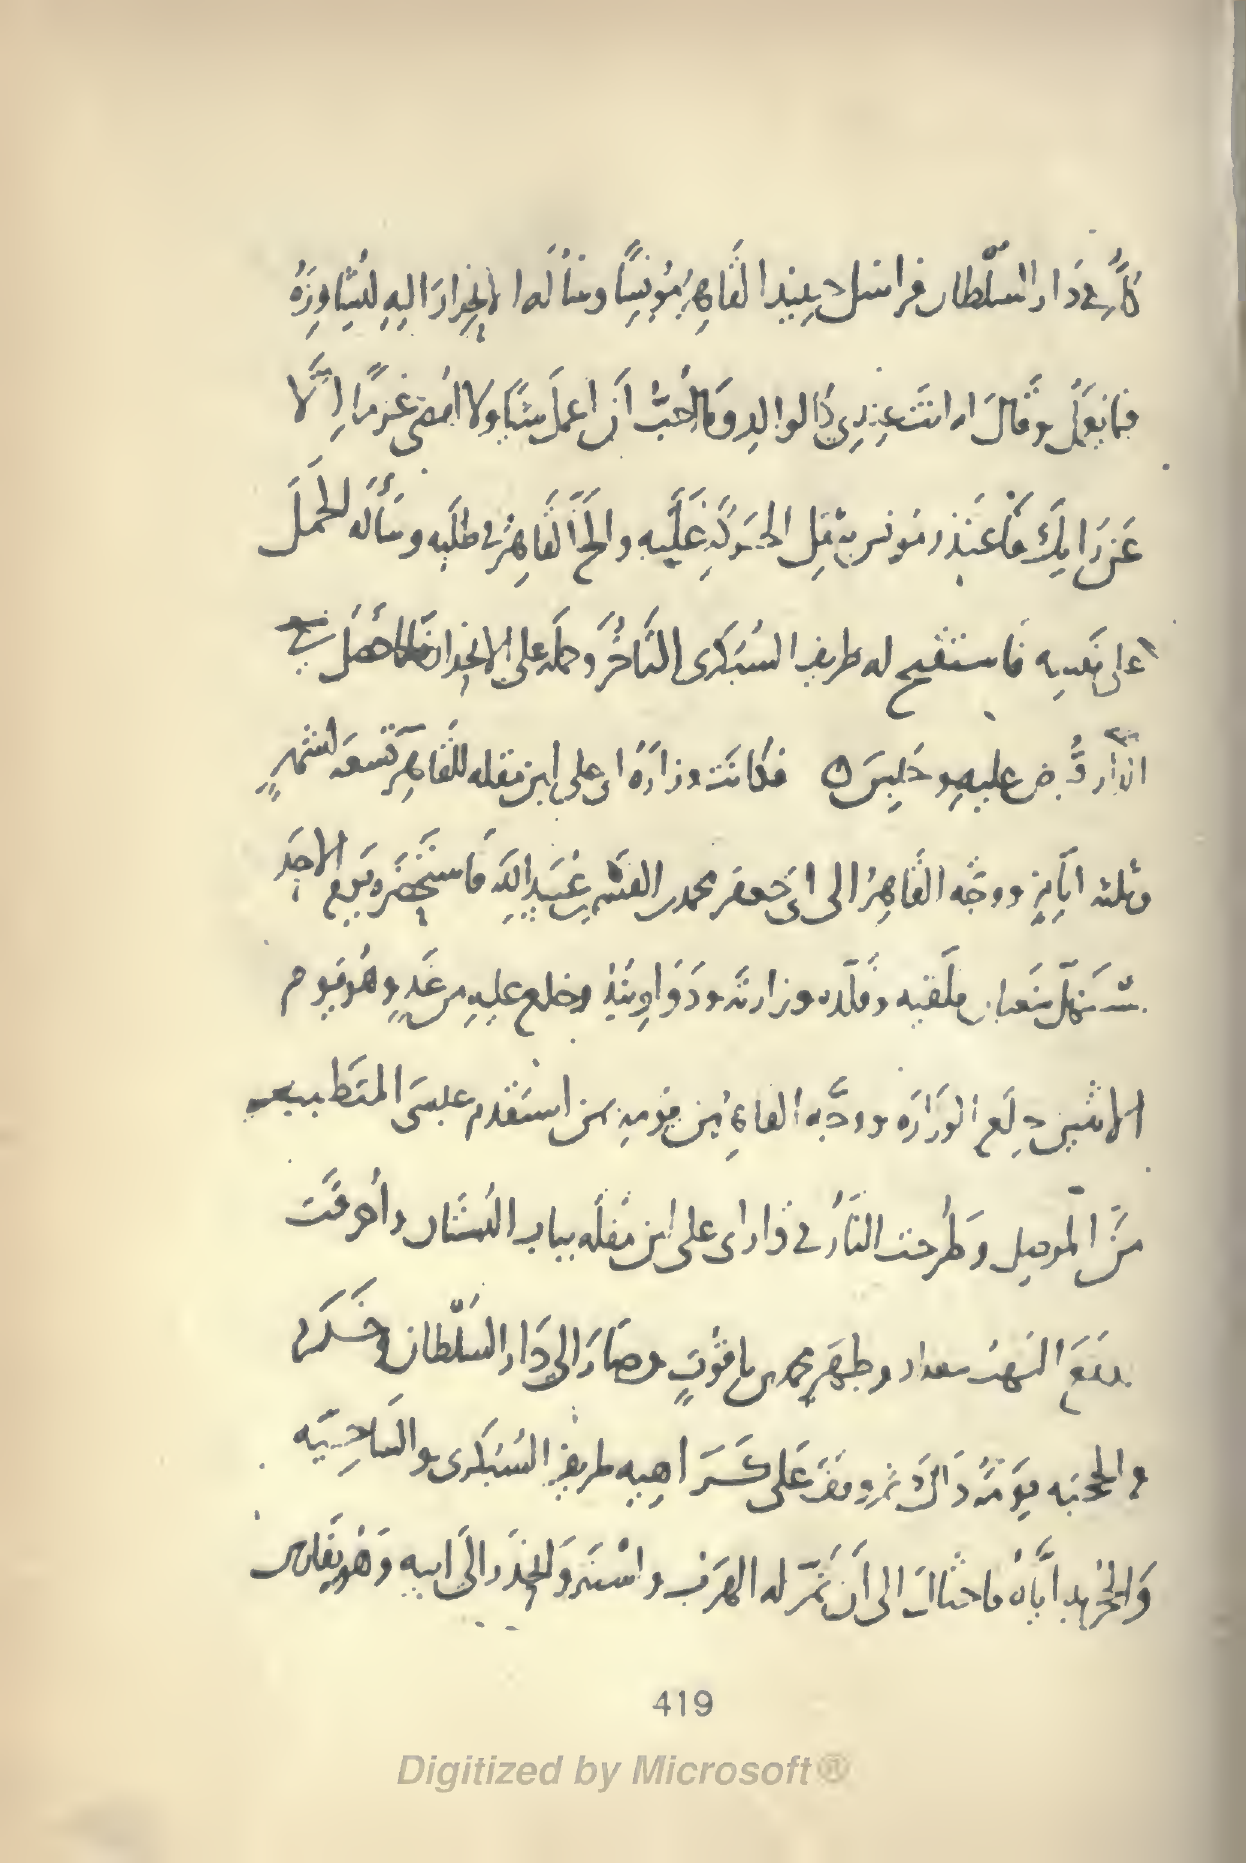 كل في دار السلطان فراسل حينئذ القاهر مونسا وسأله الانحدار اليه ليشاوره
فيما يعمل وقال له انت عندي كالوالد وما احب أن اعمل شيئا ولا امضي عزما إلا
عن رايك فاعتذر مونس بثقل الحركة عليه والح القاهر في طلبه وسأله الحمل
على نفسه فاستقبح له طريف السبكرى التأخر وحمله على الانحدار فلما حصل في
الدار قبض عليه وحبس ه فكانت وزارة ابى على ابن مقله للقاهر تسعة اشهر
وثلثة ايام ووجه القاهر الى ابى جعفر محمد بن القسم بن عبيد الله فاستحضره يوم الاحد
مستهل شعبان فلقيه وقلده وزارته ودواوينه وخلع عليه من غد وهو يوم
الاثنين خلع الوزارة ووجه القاهر من يومه من استقدم عيسى المتطبب
من الموصل وطرحت النار في دار ابى على ابن مقله بباب البستان وأحرقت
ووقع النهب ببغداد وظهر محمد بن ياقوت وصار الى دار السلطان وخدم
في الحجبة يومه ذاك ثم وقف على كراهية طريف السبكرى والساجية
والحجرية اياه فاحتال الى أن تم له الهرب واستتر وانحدر الى ابيه وهو بفارس
419
Digitized by Microsoft®